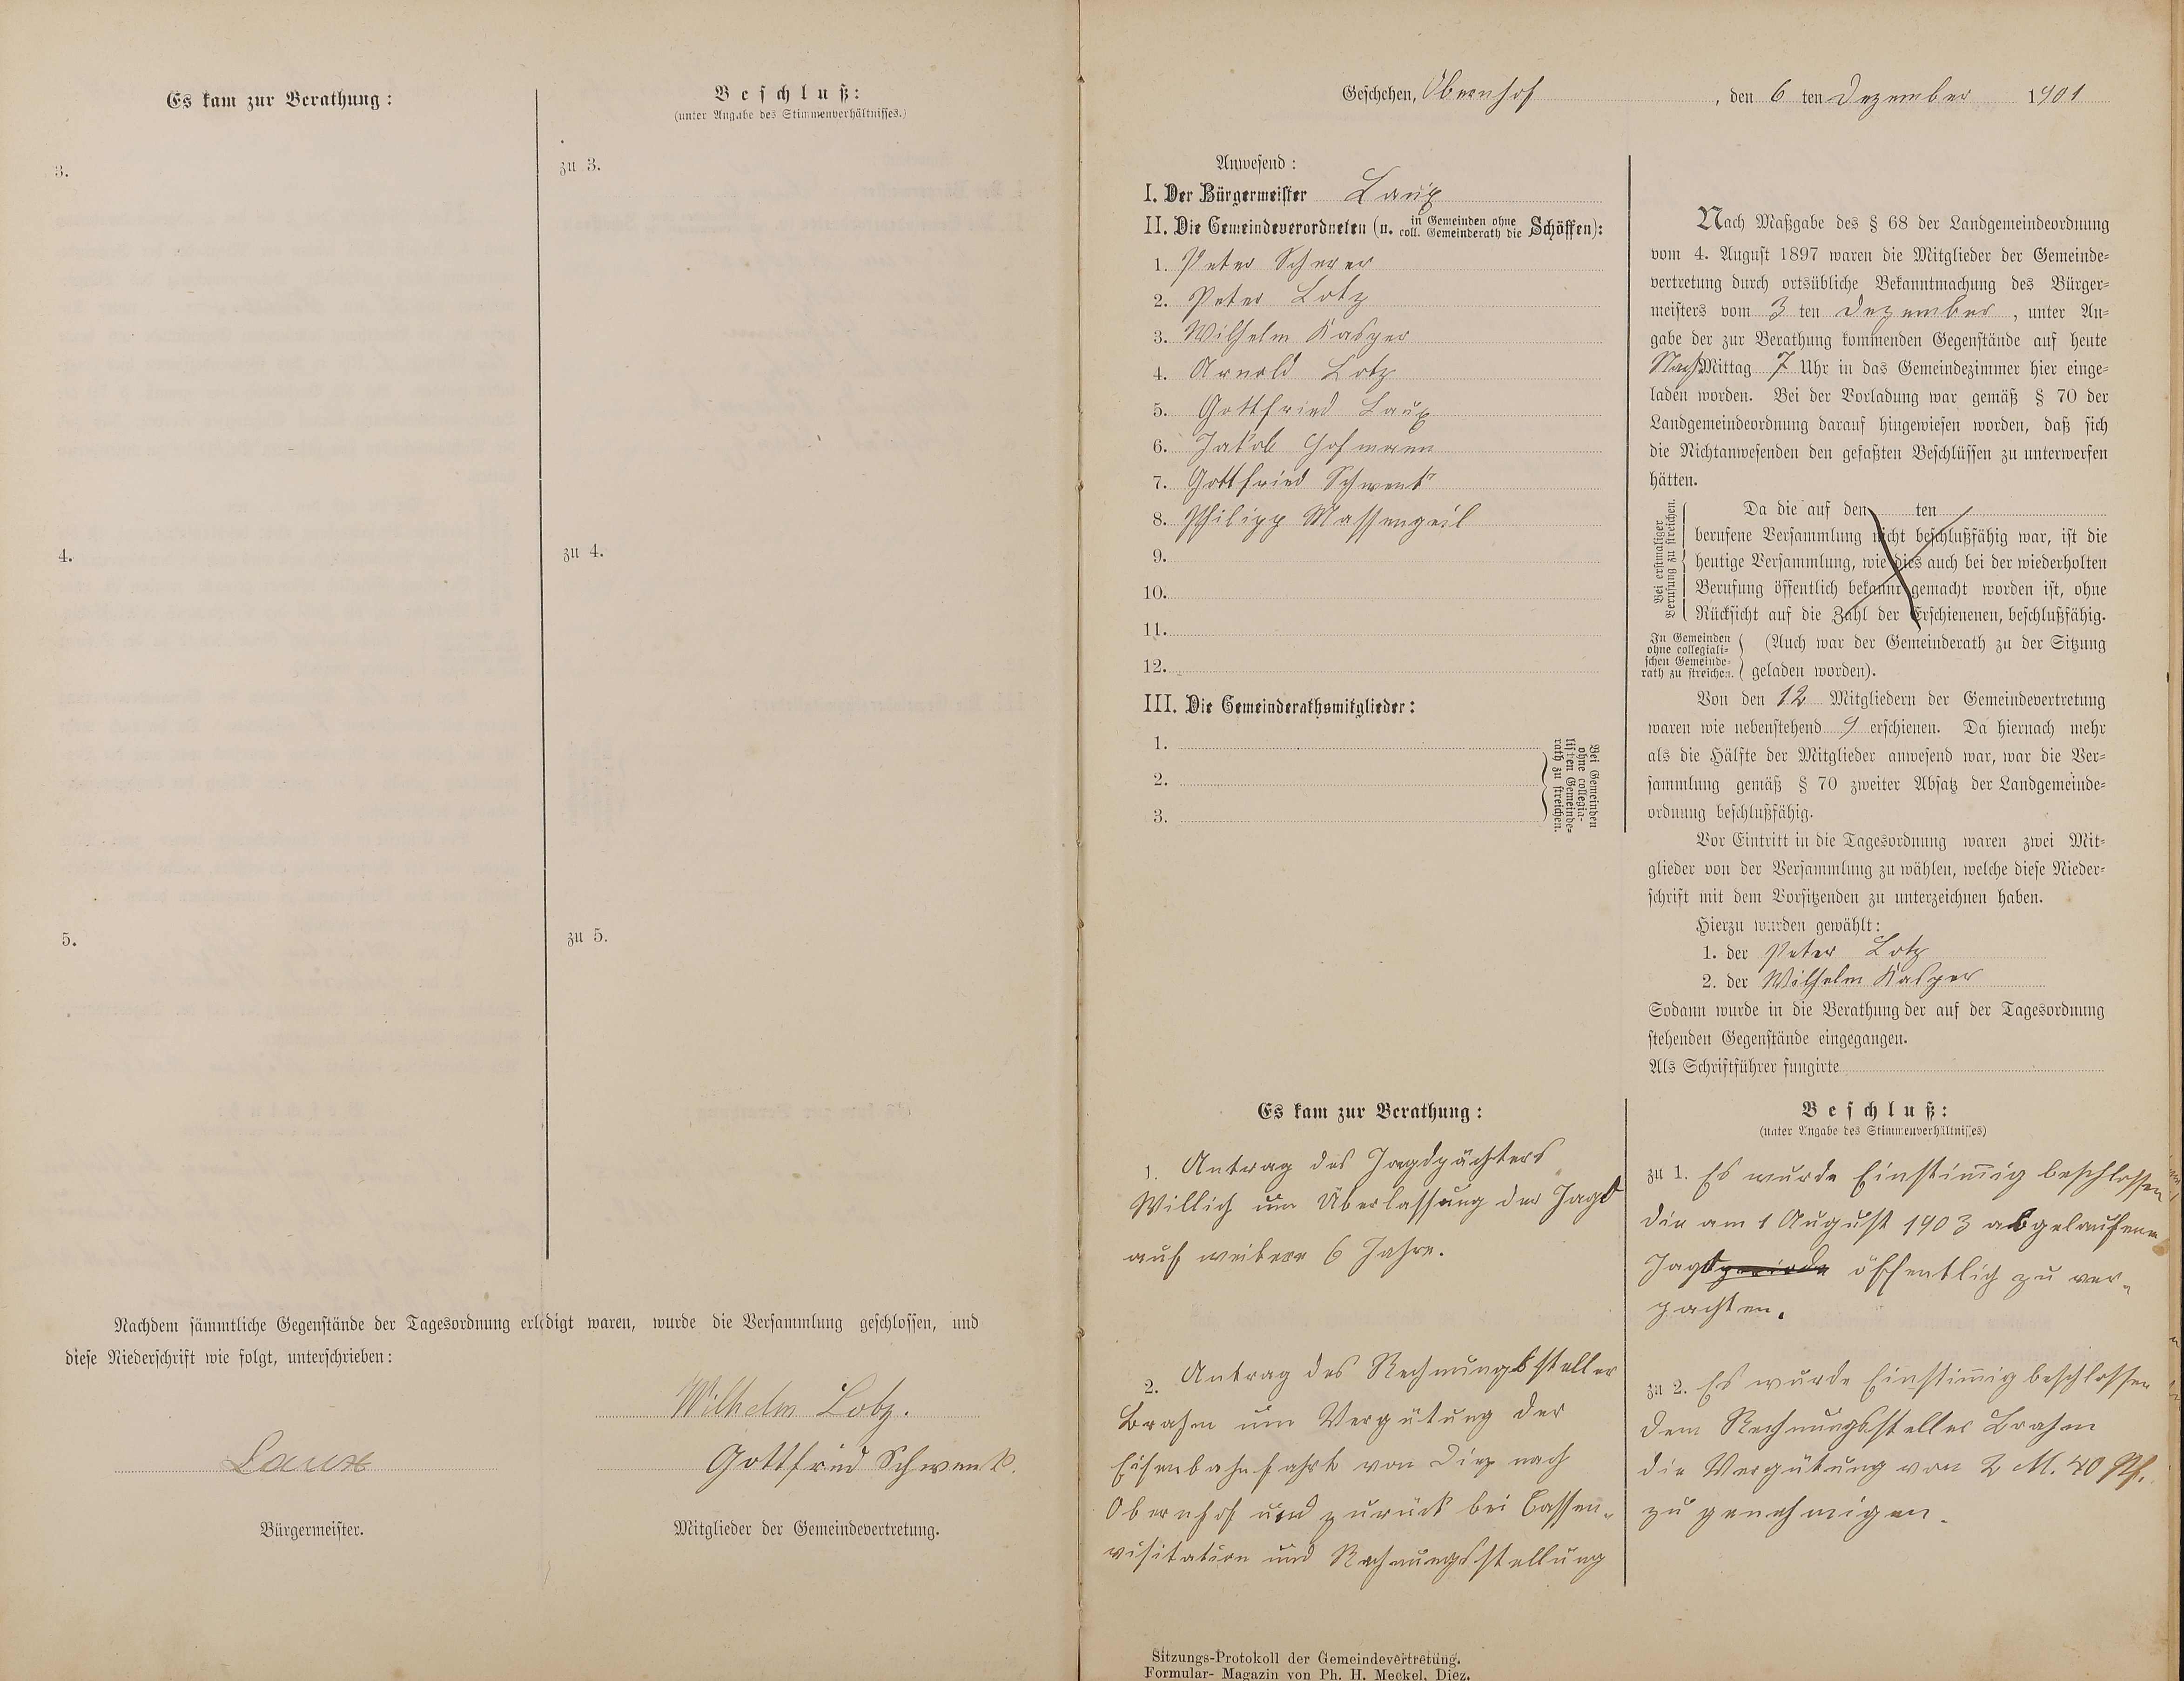 Es kam zur Berathung:
Beschluß:
(unter Angabe des Stimmenverhältnisses.)
3.
zu 3.
4.
zu 4.
5.
zu 5.
Nachdem sämmtliche Gegenstände der Tagesordnung erledigt waren, wurde die Versammlung geschlossen, und
diese Niederschrift wie folgt, unterschrieben:
Wilhelm Lotz.
Laux
Gottfried Schwenk.
Bürgermeister.
Mitglieder der Gemeindevertretung.
Geschehen, Obernhof, den 6 ten Dezember 1901
Anwesend:
I. Der Bürgermeister Laux
II. Die Gemeindeverordneten (u. in Gemeinden ohne coll. Gemeinderath die Schöffen):
1. Peter Scherer
2. Peter Lotz
3. Wilhelm Kasper
4. Arnold Lotz
5. Gottfried Laux
6. Jakob Hofmann
7. Gottfried Schwenk
8. Philipp Massengeil
9.
10.
11.
12.
III. Die Gemeinderathsmitglieder:
1.
2.
3.
Bei Gemeinden
ohne collegia-
listen Gemeinde-
rath zu streichen.
Nach Maßgabe des § 68 der Landgemeindeordnung
vom 4. August 1897 waren die Mitglieder der Gemeinde-
vertretung durch ortsübliche Bekanntmachung des Bürger-
meisters vom 3 ten Dezember, unter An-
gabe der zur Berathung kommenden Gegenstände auf heute
NachMittag 7 Uhr in das Gemeindezimmer hier einge-
laden worden. Bei der Vorladung war gemäß § 70 der
Landgemeindeordnung darauf hingewiesen worden, daß sich
die Nichtanwesenden den gefaßten Beschlüssen zu unterwerfen
hätten.
Bei erstmaliger
Berufung zu streichen.
Da die auf den ten
berufene Versammlung nicht beschlußfähig war, ist die
heutige Versammlung, wie dies auch bei der wiederholten
Berufung öffentlich bekannt gemacht worden ist, ohne
Rücksicht auf die Zahl der Erschienenen, beschlußfähig.
In Gemeinden
ohne collegiali-
schen Gemeinde-
rath zu streichen.
(Auch war der Gemeinderath zu der Sitzung
geladen worden).
Von den 12 Mitgliedern der Gemeindevertretung
waren wie nebenstehend 9 erschienen. Da hiernach mehr
als die Hälfte der Mitglieder anwesend war, war die Ver-
sammlung gemäß § 70 zweiter Absatz der Landgemeinde-
ordnung beschlußfähig.
Vor Eintritt in die Tagesordnung waren zwei Mit-
glieder von der Versammlung zu wählen, welche diese Nieder-
schrift mit dem Vorsitzenden zu unterzeichnen haben.
Hierzu wurden gewählt:
1. der Peter Lotz
2. der Wilhelm Kasper
Sodann wurde in die Berathung der auf der Tagesordnung
stehenden Gegenstände eingegangen.
Als Schriftführer fungirte
Es kam zur Berathung:
1. Antrag des Jagdpächters
Willich um Überlassung der Jagd
auf weitere 6 Jahre.
2. Antrag des Rechnungssteller
Brahm um Vergütung der
Eisenbahnfahrt von Diez nach
Obernhof und zurück bei Cassen-
visitation und Rechnungsstellung
Beschluß:
(unter Angabe des Stimmenverhältnisses)
zu 1. Es wurde Einstimmig beschlossen
die am 1 August 1903 abgelaufene
Jagdperiode öffentlich zu ver-
pachten.
zu 2. Es wurde Einstimmig beschlossen
dem Rechnungssteller Brahm
die Vergütung von 2 M. 40 Pf.
zu genehmigen.
Sitzungs-Protokoll der Gemeindevertretung.
Formular- Magazin von Ph. H. Meckel, Diez.